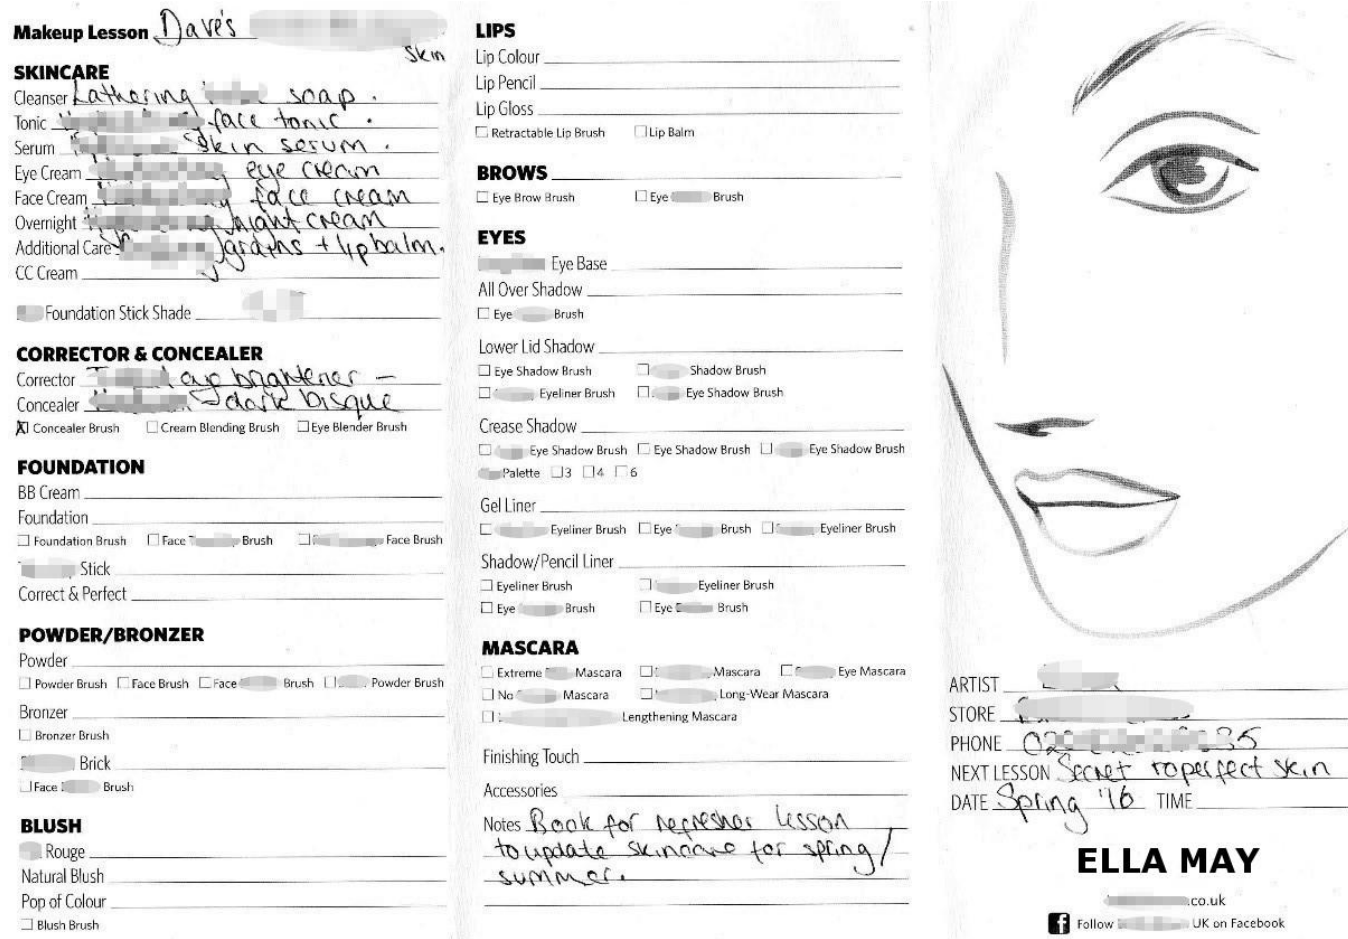 Makeup Lesson Dave's
Skin
SKINCARE
Cleanser Lathering soap.
Tonic face tonic.
Serum Skin serum.
Eye Cream eye cream
Face Cream face cream
Overnight night cream
Additional Care + lip balm.
CC Cream
Foundation Stick Shade
CORRECTOR & CONCEALER
Corrector eye brightener –
Concealer dark bisque
Concealer Brush Cream Blending Brush Eye Blender Brush
FOUNDATION
BB Cream
Foundation
Foundation Brush Face Brush Face Brush
Stick
Correct & Perfect
POWDER/BRONZER
Powder
Powder Brush Face Brush Face Brush Powder Brush
Bronzer
Bronzer Brush
Brick
Face Brush
BLUSH
Rouge
Natural Blush
Pop of Colour
Blush Brush
LIPS
Lip Colour
Lip Pencil
Lip Gloss
Retractable Lip Brush Lip Balm
BROWS
Eye Brow Brush Eye Brush
EYES
Eye Base
All Over Shadow
Eye Brush
Lower Lid Shadow
Eye Shadow Brush Shadow Brush
Eyeliner Brush Eye Shadow Brush
Crease Shadow
Eye Shadow Brush Eye Shadow Brush Eye Shadow Brush
Palette 3 4 6
Gel Liner
Eyeliner Brush Eye Brush Eyeliner Brush
Shadow/Pencil Liner
Eyeliner Brush Eyeliner Brush
Eye Brush Eye Brush
MASCARA
Extreme Mascara Mascara Eye Mascara
No Mascara Long-Wear Mascara
Lengthening Mascara
Finishing Touch
Accessories
Notes Book for refresher lesson
to update skincare for spring/
summer.
ARTIST
STORE
PHONE 02 35
NEXT LESSON Secret to perfect skin
DATE Spring '16 TIME
ELLA MAY
.co.uk
Follow UK on Facebook